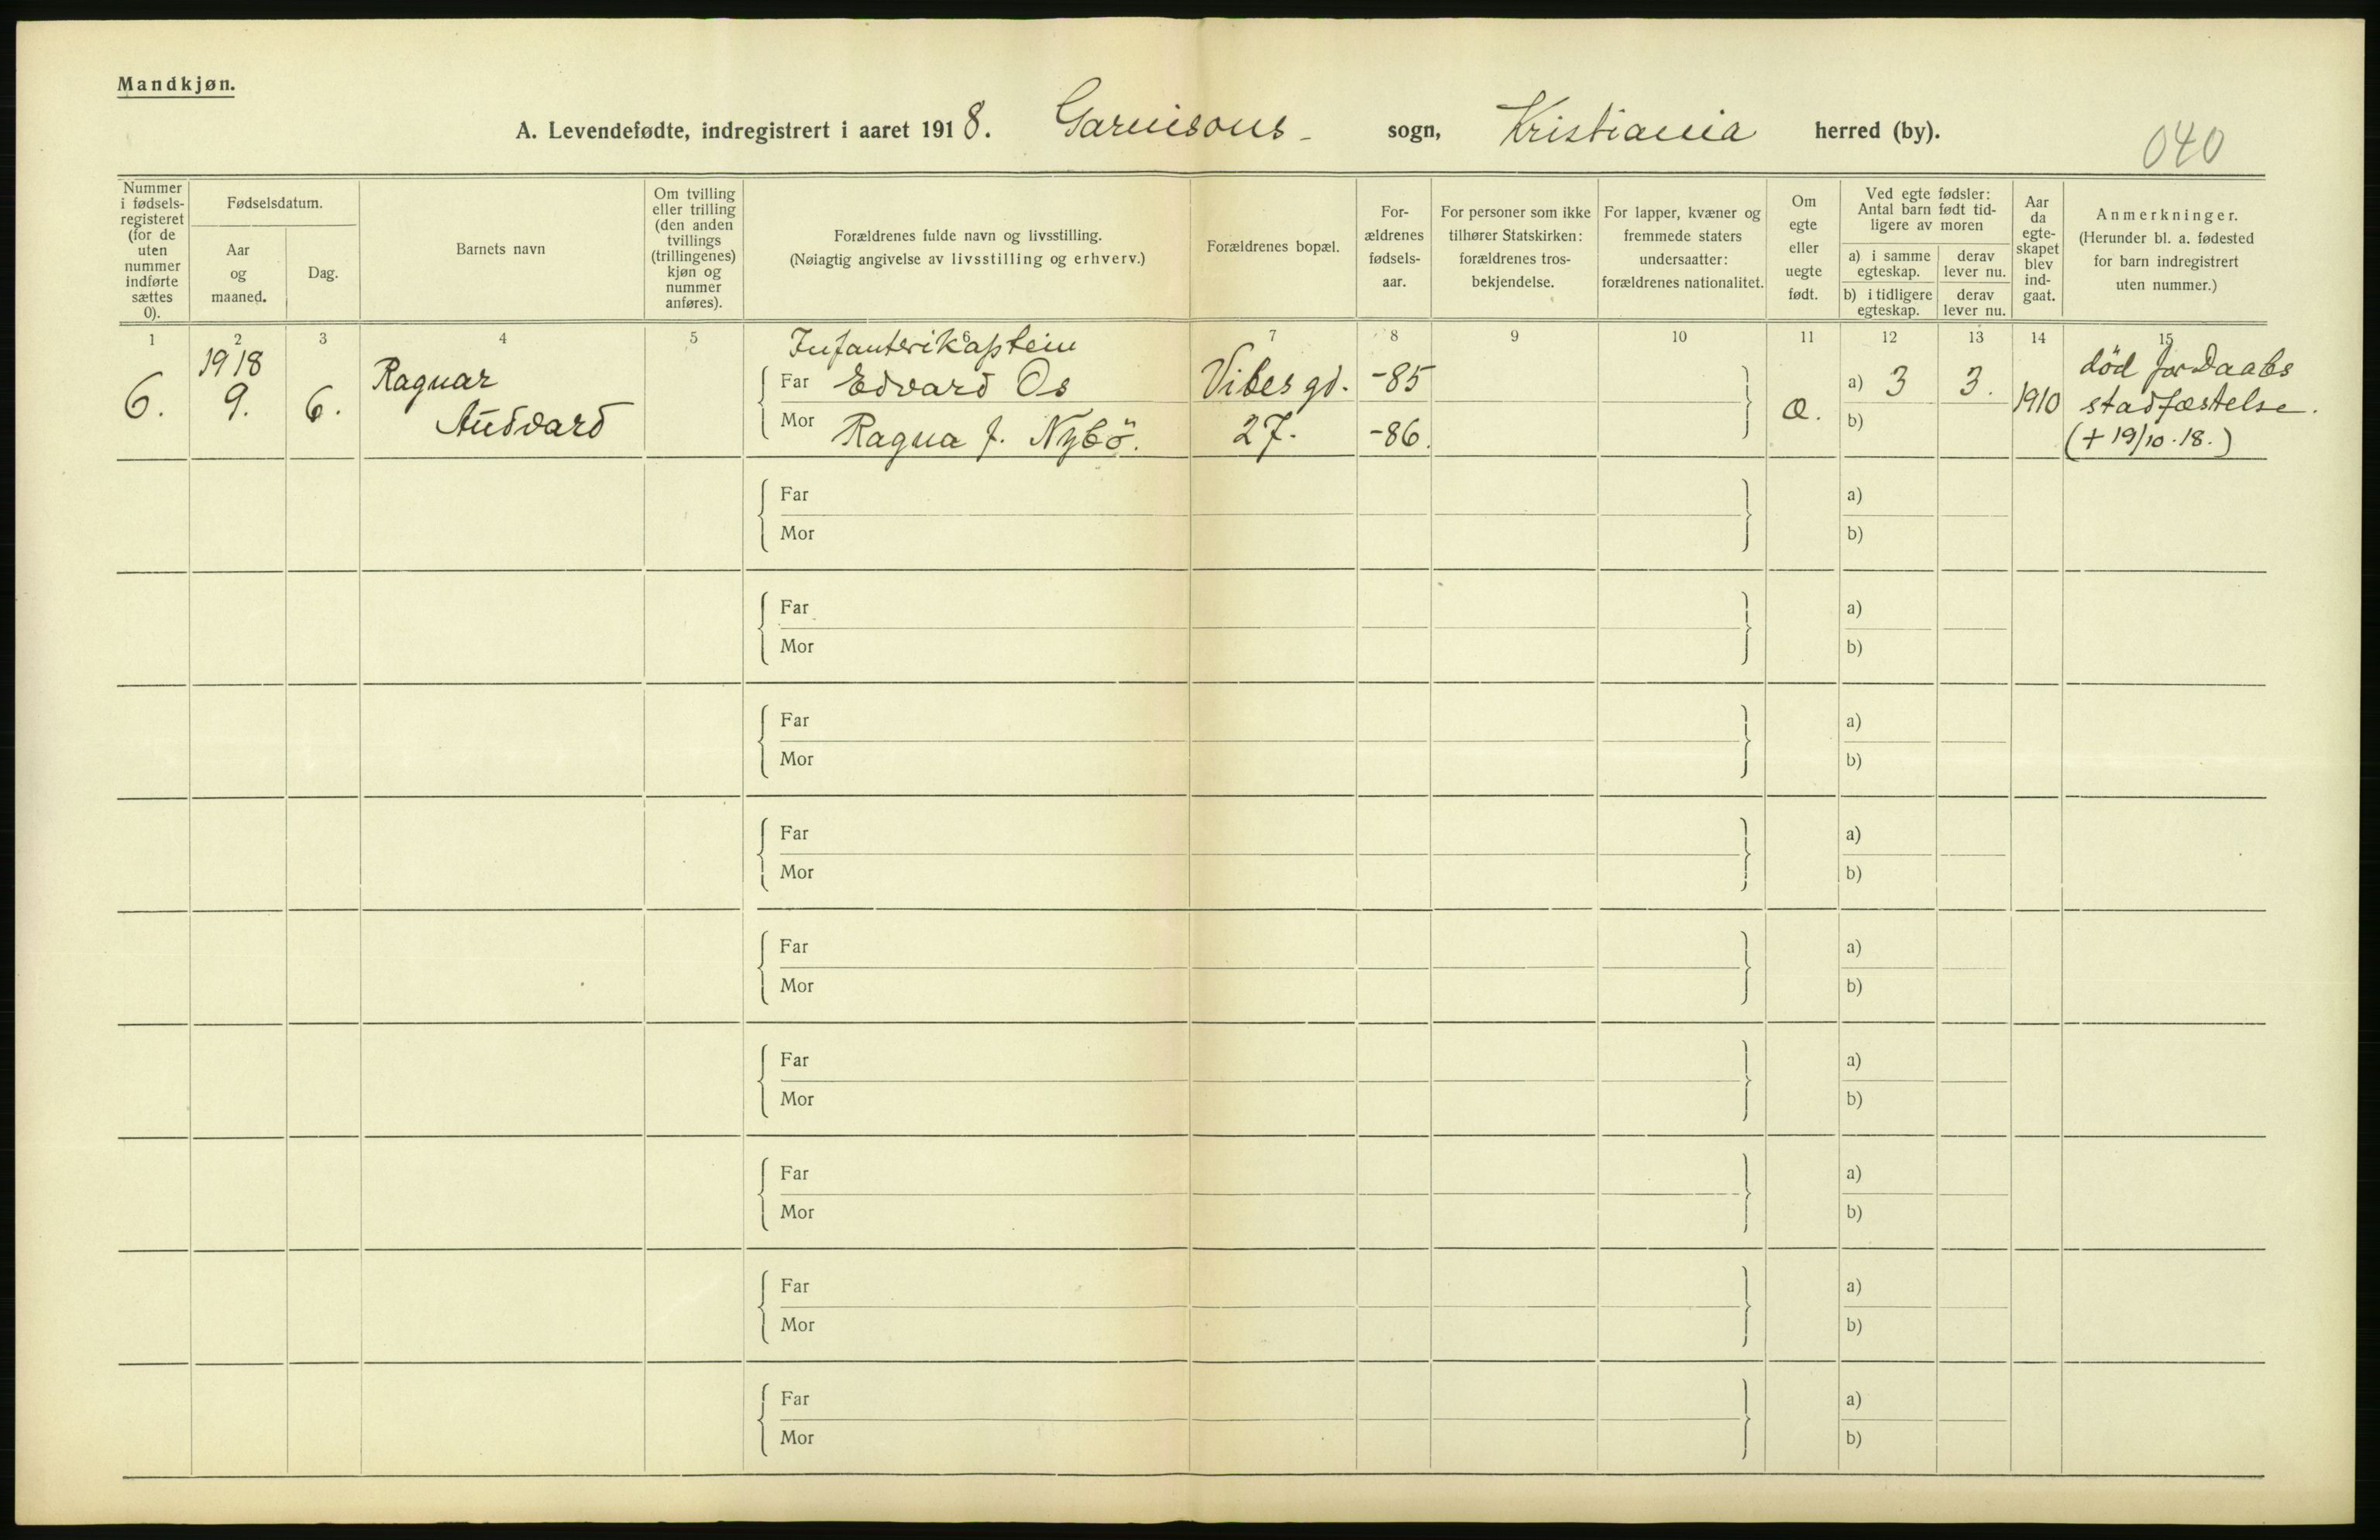 Mandkjøn.
A. Levendefødte, indregistrert i aaret 1918. Garnisons- sogn, Kristiania herred (by).
040
Nummer i fødsels-registeret (for de uten nummer indførte sættes 0).
Fødselsdatum.
Aar og maaned.
Dag.
Barnets navn
Om tvilling eller trilling (den anden tvillings (trillingenes) kjøn og nummer anføres).
Forældrenes fulde navn og livsstilling.
(Nøiagtig angivelse av livsstilling og erhverv.)
Forældrenes bopæl.
For-ældrenes fødsels-aar.
For personer som ikke tilhører Statskirken: forældrenes tros-bekjendelse.
For lapper, kvæner og fremmede staters undersaatter: forældrenes nationalitet.
Om egte eller uegte født.
Ved egte fødsler: Antal barn født tid-ligere av moren
a) i samme egteskap.
derav lever nu.
b) i tidligere egteskap.
derav lever nu.
Aar da egte-skapet blev ind-gaat.
Anmerkninger.
(Herunder bl. a. fødested for barn indregistrert uten nummer.)
1 2 3 4 5 6 7 8 9 10 11 12 13 14 15
1918 Infanterikaptein død før Daabs
6. 9. 6. Ragnar Far Edvard Os Vibes gd. -85 a) 3 3. 1910 stadfæstelse.
Audvard Mor Ragna f. Nybö. 27. -86. Æ. b) (+ 19/10.18.)
Far a)
Mor b)
Far a)
Mor b)
Far a)
Mor b)
Far a)
Mor b)
Far a)
Mor b)
Far a)
Mor b)
Far a)
Mor b)
Far a)
Mor b)
Far a)
Mor b)